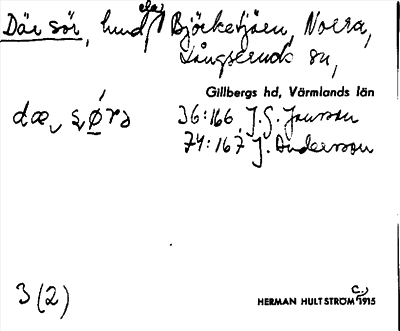 Där sör, hund el. d. Björketjärn, Norra,
Långseruds sn,
Gillbergs hd, Värmlands län
dæ, s̨ǿ̱rə 36:166 J.G. Jonsson
74:167 J. Andersson
3 (2)
HERMAN HULTSTRÖM C:a 1915